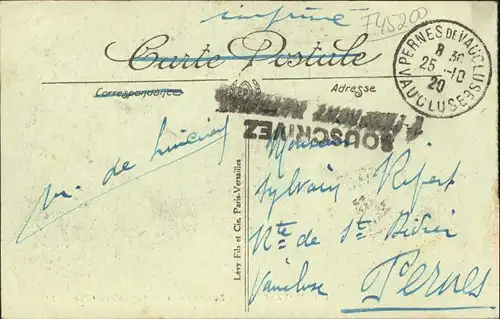 imprimé
745200
Carte Postale
Correspondance
Adresse
PERNES DE VAUCLUSE
8 30
25 -10
20
VAUCLUSE
SOUSCRIVEZ
Monsieur
Sylvain
Rte de St Didier
Vaucluse
Pernes
M. de
Lévy Fils et Cie, Paris-Versailles